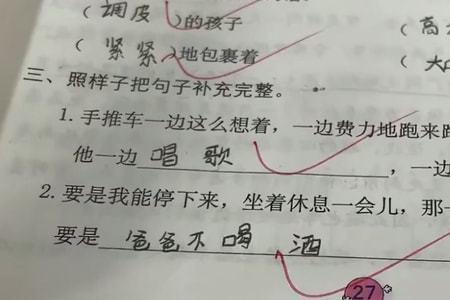 （调皮）的孩子
（高
（紧紧）地包裹着
（大
三、照样子把句子补充完整。
1. 手推车一边这么想着，一边费力地跑来跑
他一边 唱歌 ，一边
2. 要是我能停下来，坐着休息一会儿，那一
要是 爸爸不喝酒
27